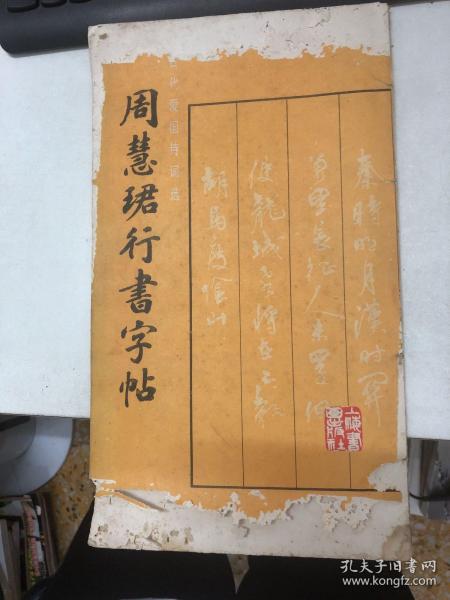 周慧珺行書字帖
代爱国诗词选
秦時明月漢时関
萬里長征人未還但
使龍城飛將在不教
胡馬度陰山
上海書
畫出版社
孔夫子旧书网
www.kongfz.com